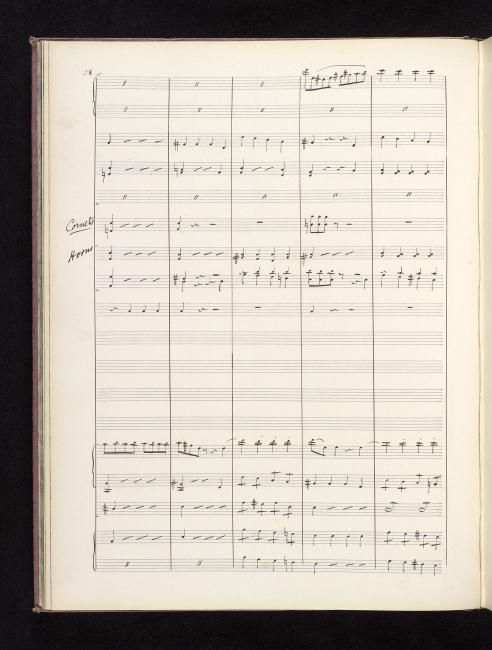 28
Cornets
Horns